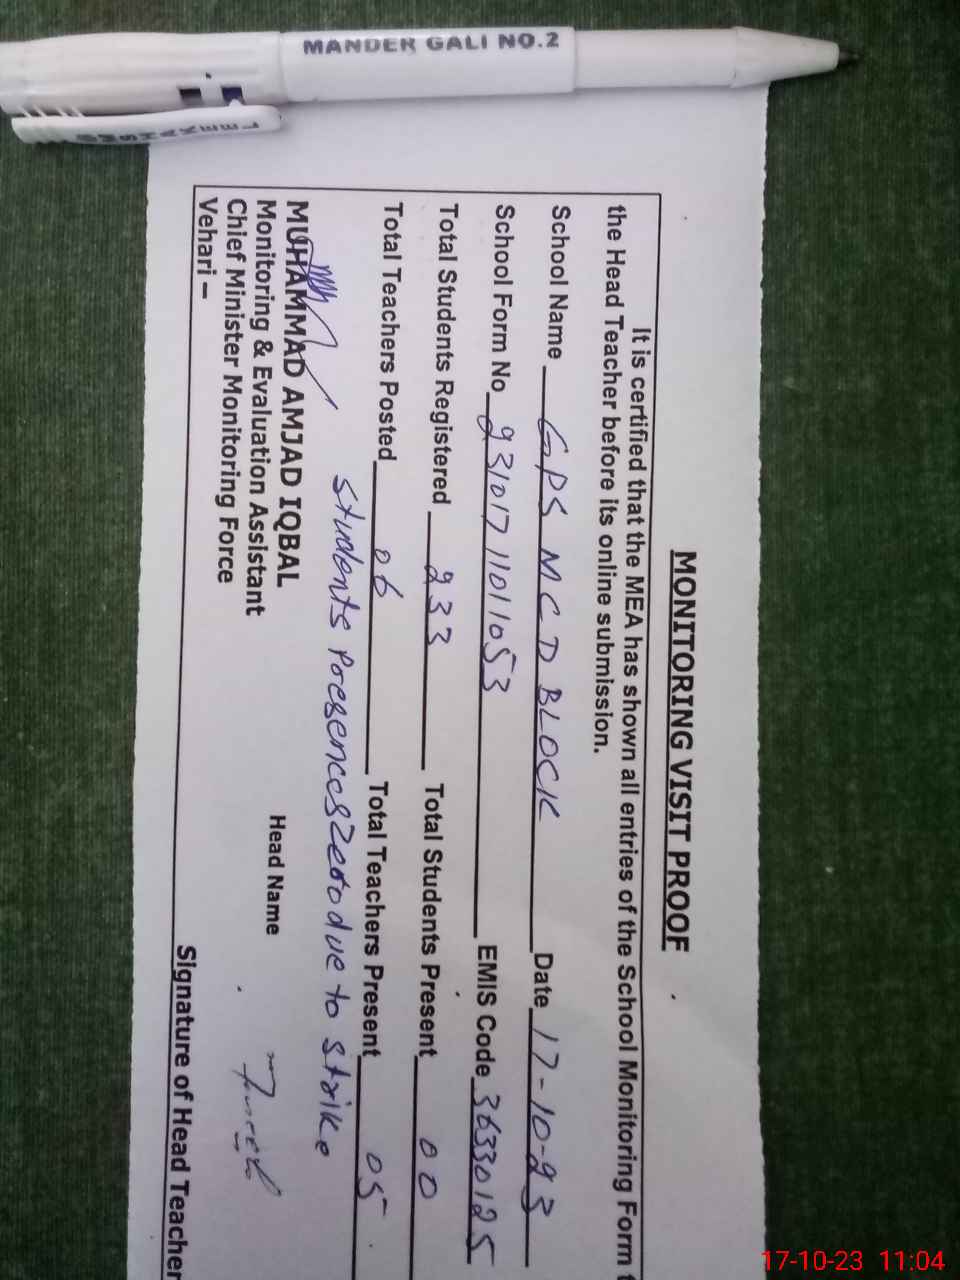 MANDER GALI NO.2
MONITORING VISIT PROOF
It is certified that the MEA has shown all entries of the School Monitoring Form t
the Head Teacher before its online submission.
School Name GPS M C D BLOCK Date 17-10-23
School Form No 231017 1101053 EMIS Code 36330125
Total Students Registered 233 Total Students Present 00
Total Teachers Posted 06 Total Teachers Present 05
Students Presences Zero due to strike
MUHAMMAD AMJAD IQBAL
Monitoring & Evaluation Assistant Head Name
Chief Minister Monitoring Force
Vehari – Signature of Head Teacher
17-10-23 11:04